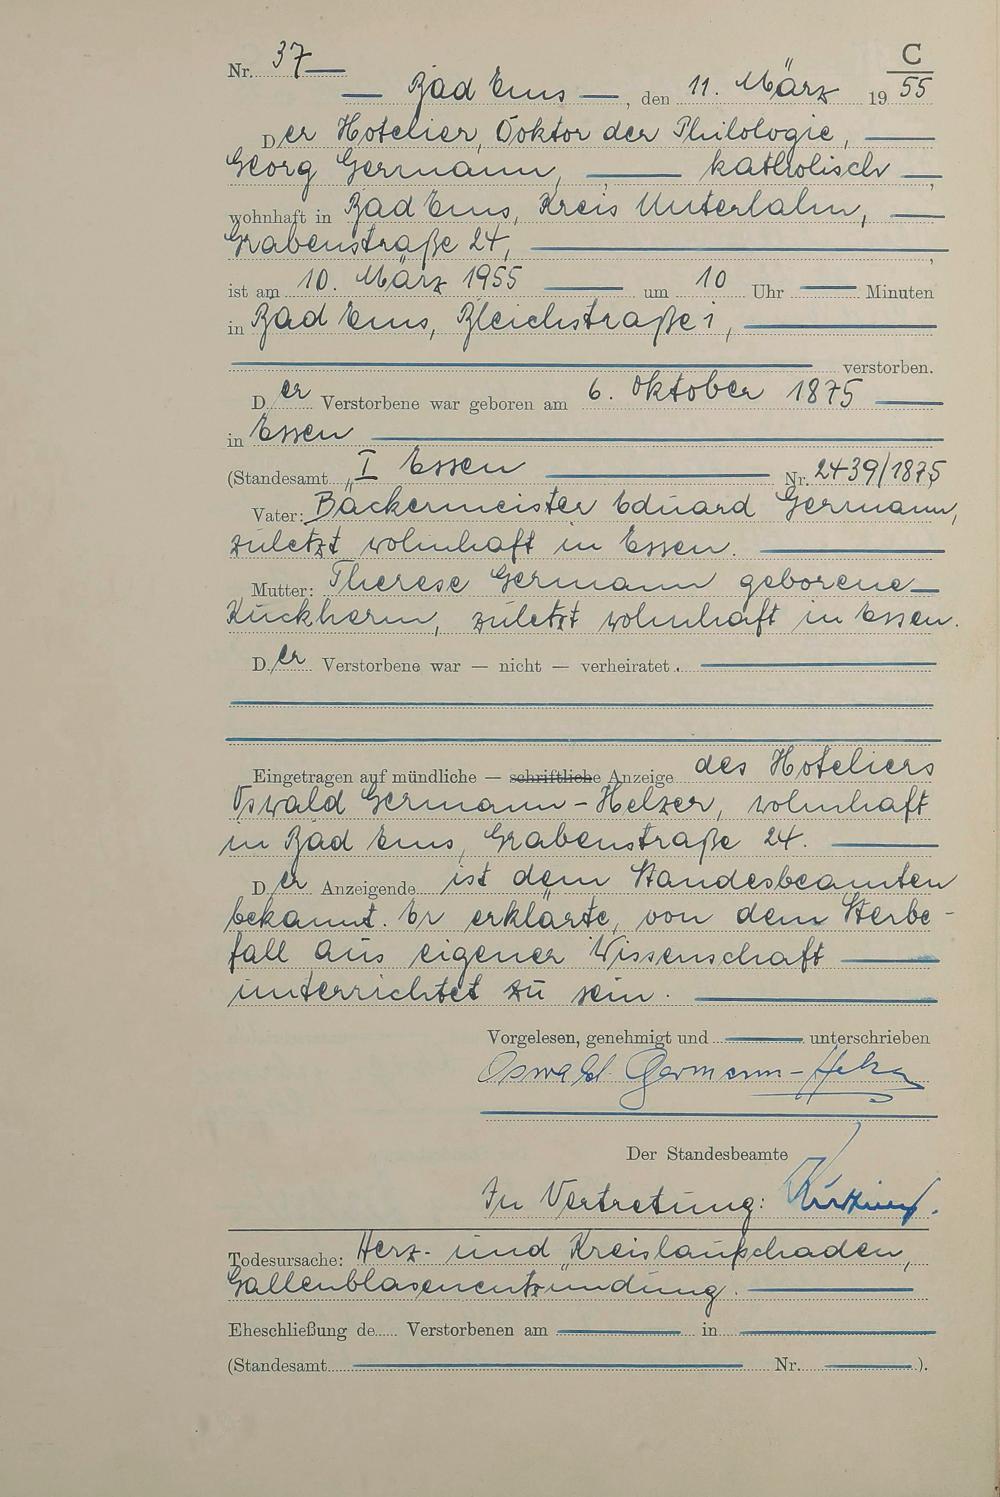 C
Nr. 37
Bad Ems, den 11. März 1955
Der Hotelier, Doktor der Philologie,
Georg Germann, katholisch,
wohnhaft in Bad Ems, Kreis Unterlahn,
Grabenstraße 24,
ist am 10. März 1955 um 10 Uhr Minuten
in Bad Ems, Bleichstraße 1,
verstorben.
Der Verstorbene war geboren am 6. Oktober 1875
in Essen
(Standesamt I Essen Nr. 2439/1875
Vater: Bäckermeister Eduard Germann,
zuletzt wohnhaft in Essen.
Mutter: Therese Germann geborene
zuletzt wohnhaft in Essen.
Der Verstorbene war — nicht — verheiratet.
Eingetragen auf mündliche — schriftliche Anzeige des Hoteliers
Oswald Germann-Helzer, wohnhaft
in Bad Ems, Grabenstraße 24.
Der Anzeigende ist dem Standesbeamten
bekannt. Er erklärte, von dem Sterbe-
fall aus eigener Wissenschaft
unterrichtet zu sein.
Vorgelesen, genehmigt und unterschrieben
Oswald Germann-
Der Standesbeamte
In Vertretung:
Todesursache: Herz- und Kreislaufschaden,
Gallenblasenentzündung.
Eheschließung de Verstorbenen am in
(Standesamt Nr. ).